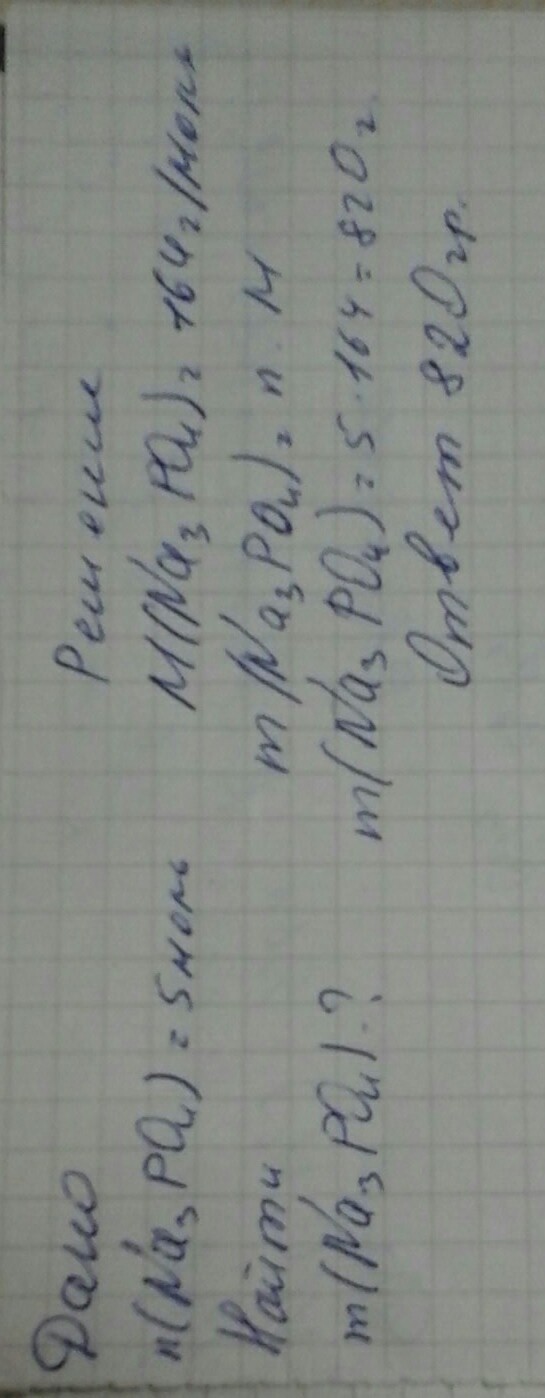 Дано
n(Na₃PO₄) = 5 моль
Найти
m(Na₃PO₄)-?
Решение
M(Na₃PO₄) = 164 г/моль
m(Na₃PO₄) = n · M
m(Na₃PO₄) = 5 · 164 = 820 г
Ответ 820 гр.